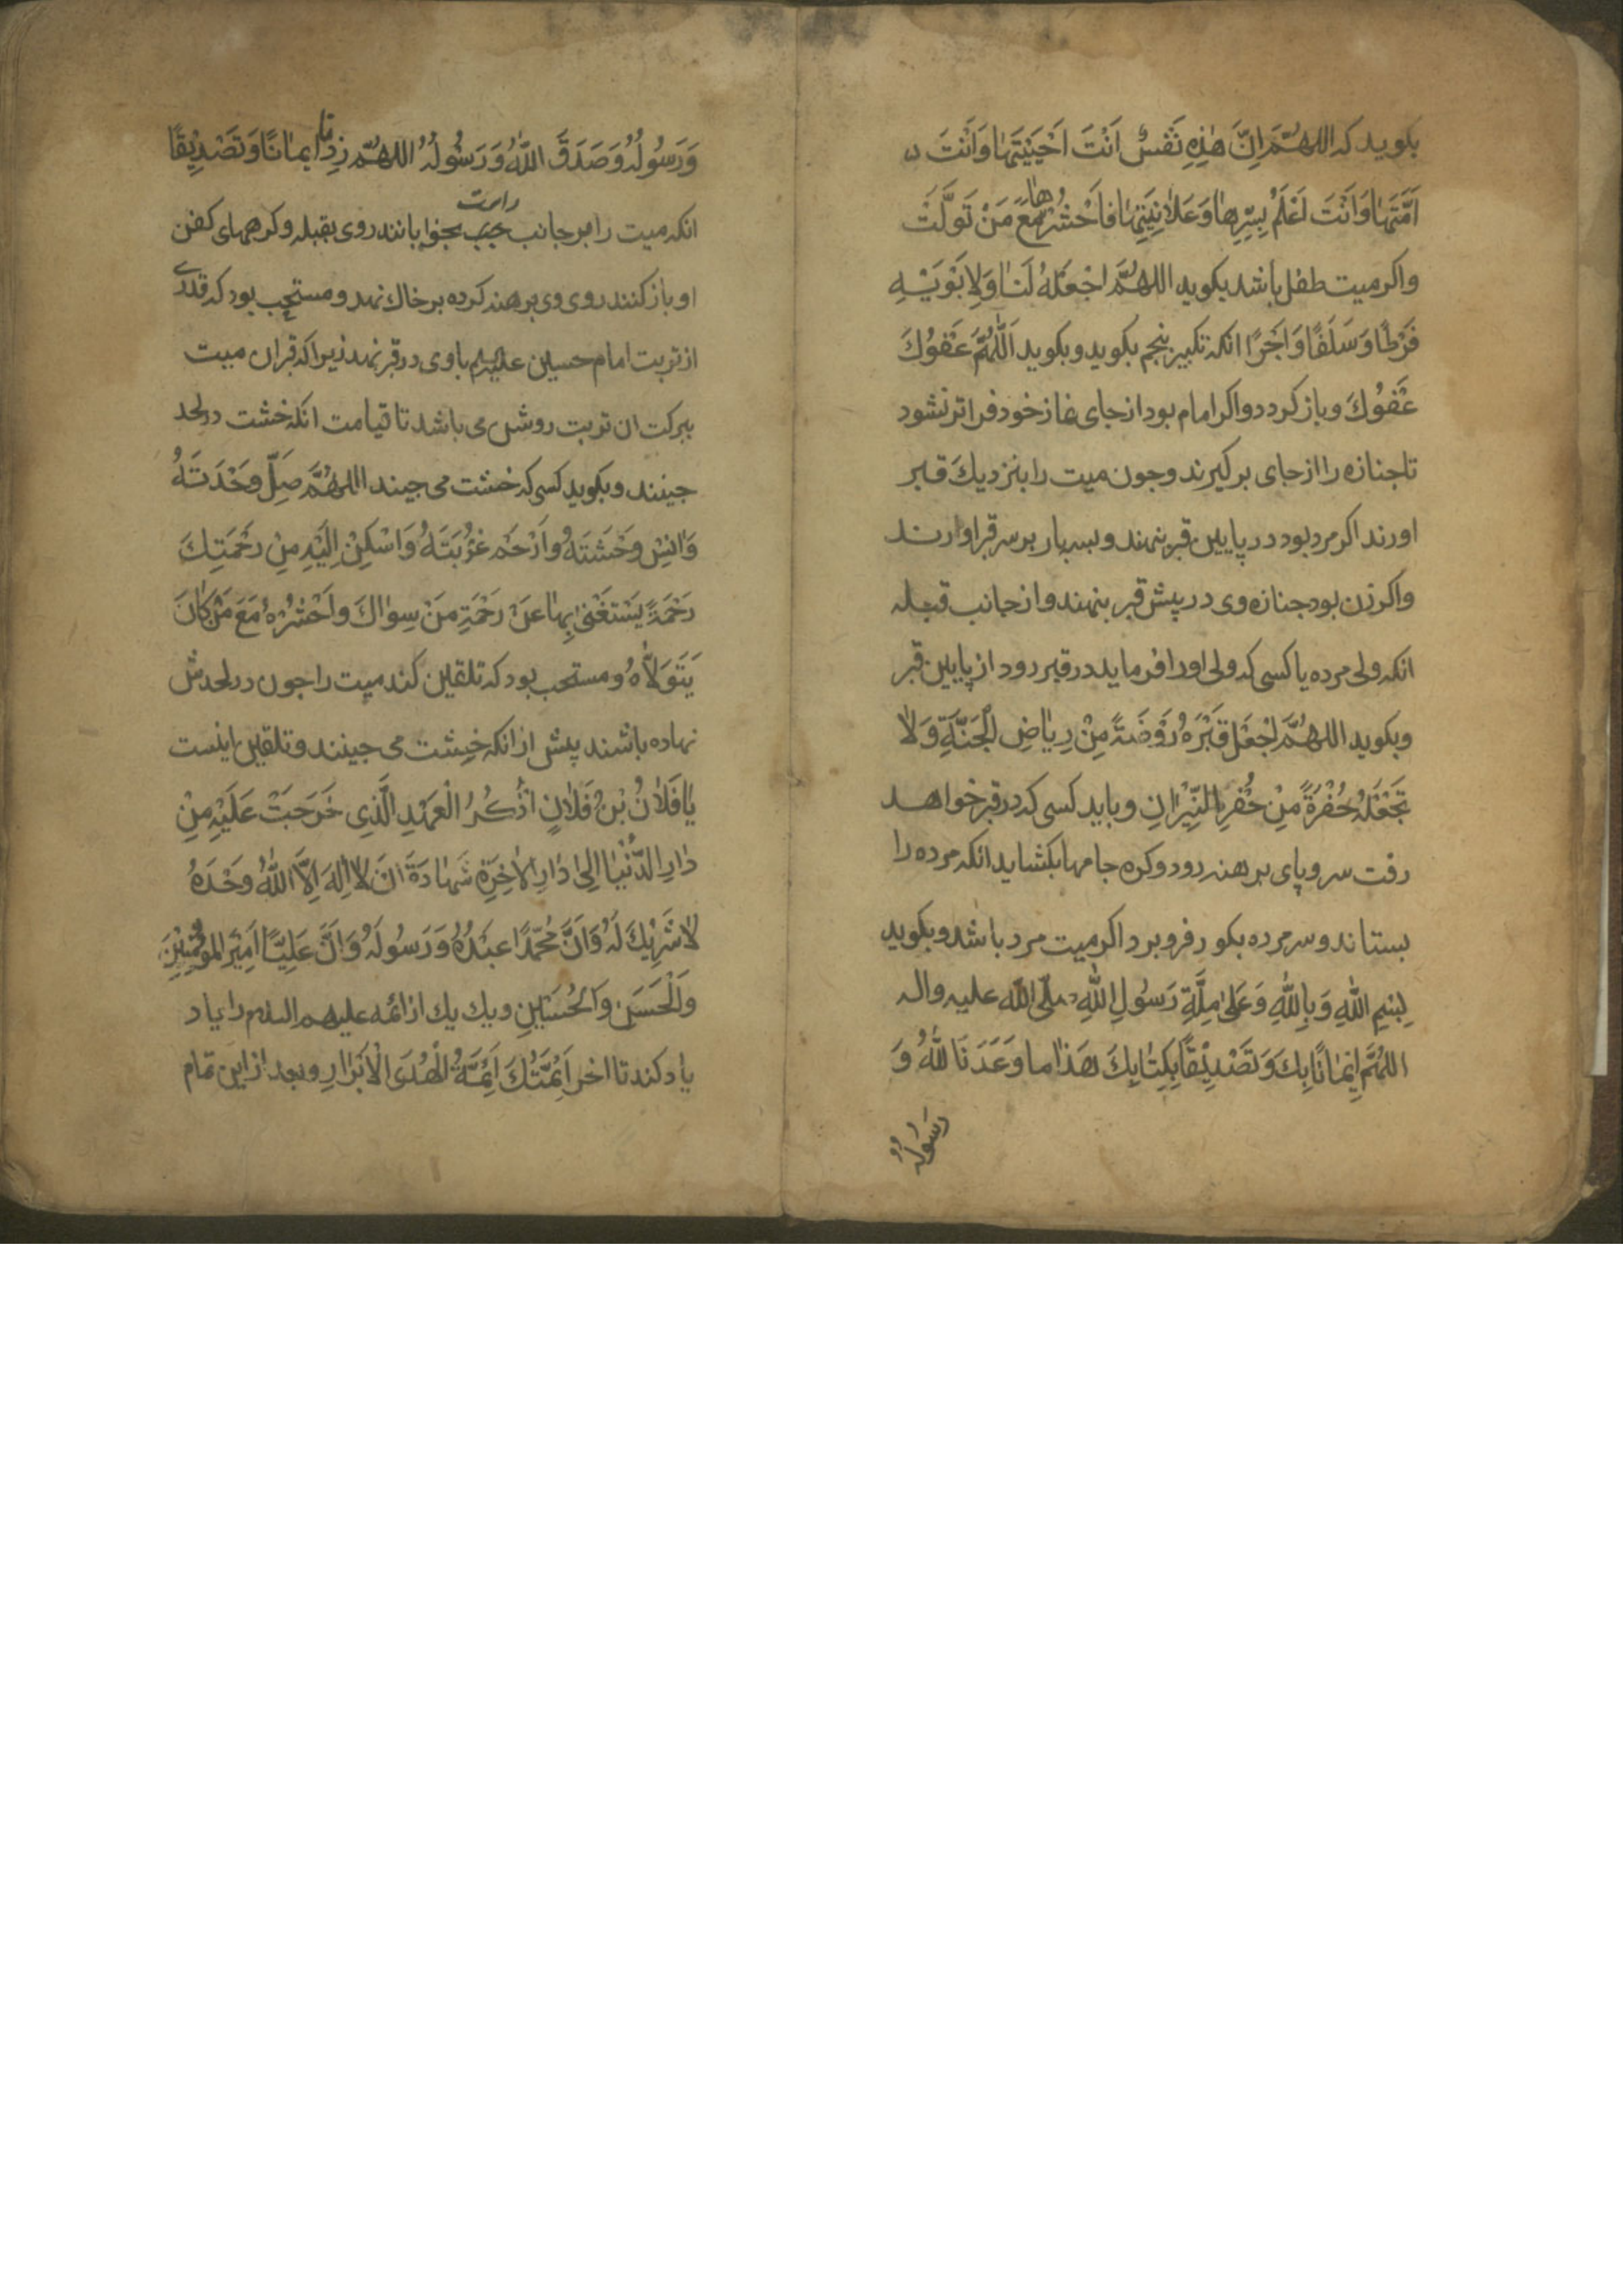 بكويد كه اللهُمَّ اِنَّ هٰذِهِ نَفْسٌ اَنْتَ اَحْيَيْتَهٰا وَاَنْتَ
اَمَّتَهٰا وَاَنْتَ تَعْلَمُ بِسِّرِهٰا وَعَلاٰنِيَتِهٰا فَاحْشُرْهٰا مَعَ مَنْ تَوَلَّتْ
واكر ميت طفل باشد بكويد اللهُمَّ اجْعَلْهُ لَنٰا وَلِاَبَوَيْهِ
فَرَطًا وَسَلَفًا وَاَجْرًا انكه تكبير پنجم بكويد وبكويد اَللّٰهُمَّ عَفْوُكَ
عَفْوُكَ وباز كردد واكر امام بود از جاى نماز خود فراتر نشود
تا جنازه را از جاى بر كيرند وجون ميت را بنزديك قبر
اورند اكر مرد بود در پايين قبر بنهند وبسه بار بر سر قبر اورند
واكر زن بود جنازه وى در پيش قبر بنهند واز جانب قبله
انكه ولى مرده يا كسى كه ولى اورا فرمايد در قبر رود از پايين قبر
وبكويد اللهُمَّ اجْعَلْ قَبْرَهُ رَوْضَةً مِنْ رِيٰاضِ الْجَنَّةِ وَلاٰ
تَجْعَلْهُ حُفْرَةً مِنْ حُفَرِ النِّيْرٰانِ وبايد كسى كه در قبر خواهد
رفت سر وپاى برهنه رود وكره جامها بكشايد انكه مرده را
بستاند وسر مرده بكور فرو برد اكر ميت مرد باشد وبكويد
بِسْمِ اللّٰهِ وَبِاللّٰهِ وَعَلىٰ مِلَّةِ رَسُولِ اللّٰهِ صلّى اللّٰه عليه واله
اللهُمَّ اِيْمٰانًا بِكَ وَتَصْدِيْقًا بِكِتٰابِكَ هَذٰا ما وَعَدَنَا اللّٰهُ وَ
رَسُولُهُ
وَرَسُولُهُ وَصَدَقَ اللّٰهُ وَرَسُولُهُ اللهُمَّ زِدْنٰا ايمٰانًا وَتَصْدِيْقًا
انكه ميت را بر جانب راست بخوابانند روى بقبله وكرههاى كفن
او باز كنند روى وى برهنه كرده بر خاك نهد ومستحب بود كه قدرى
از تربت امام حسين عليه السلم با وى در قبر نهند زيرا كه قبر ان ميت
ببركت ان تربت روشن مى باشد تا قيامت انكه خشت در لحد
جينند وبكويد كسى كه خشت مى جيند اللهُمَّ صِلْ وَحْدَتَهُ
وَانِسْ وَحْشَتَهُ وَارْحَمْ غُرْبَتَهُ وَاسْكِنْ اِلَيْهِ مِنْ رَحْمَتِكَ
رَحْمَةً يَسْتَغْنىٰ بِهٰا عَنْ رَحْمَةِ مَنْ سِوٰاكَ وَاحْشُرْهُ مَعَ مَنْ كٰانَ
يَتَوَلاّٰهُ ومستحب بود كه تلقين كند ميت را جون در لحدش
نهاده باشند پيش از انكه خشت مى جينند وتلقين اينست
يٰا فُلاٰنُ بْنُ فُلاٰنٍ اذْكُرُ الْعَهْدِ الَّذِى خَرَجْتَ عَلَيْهِ مِنْ
دٰارِ الدُّنْيٰا اِلىٰ دٰارِ الاٰخِرَةِ شَهٰادَةَ اَنْ لاٰ اِلٰهَ اِلاَّ اللّٰهُ وَحْدَهُ
لاٰ شَرِيْكَ لَهُ وَاَنَّ مُحَمَّدًا عَبْدُهُ وَرَسُولُهُ وَاَنَّ عَلِيًّا اَمِيْرَ المُؤْمِنِيْنَ
وَالْحَسَنِ وَالْحُسَيْنِ ويك يك از ائمه عليهم السلام را ياد
ياد كند تا اخر اَئِمَّتُكَ اَئِمَّةُ الْهُدَى الْاَبْرٰارِ وبعد از اين تمام